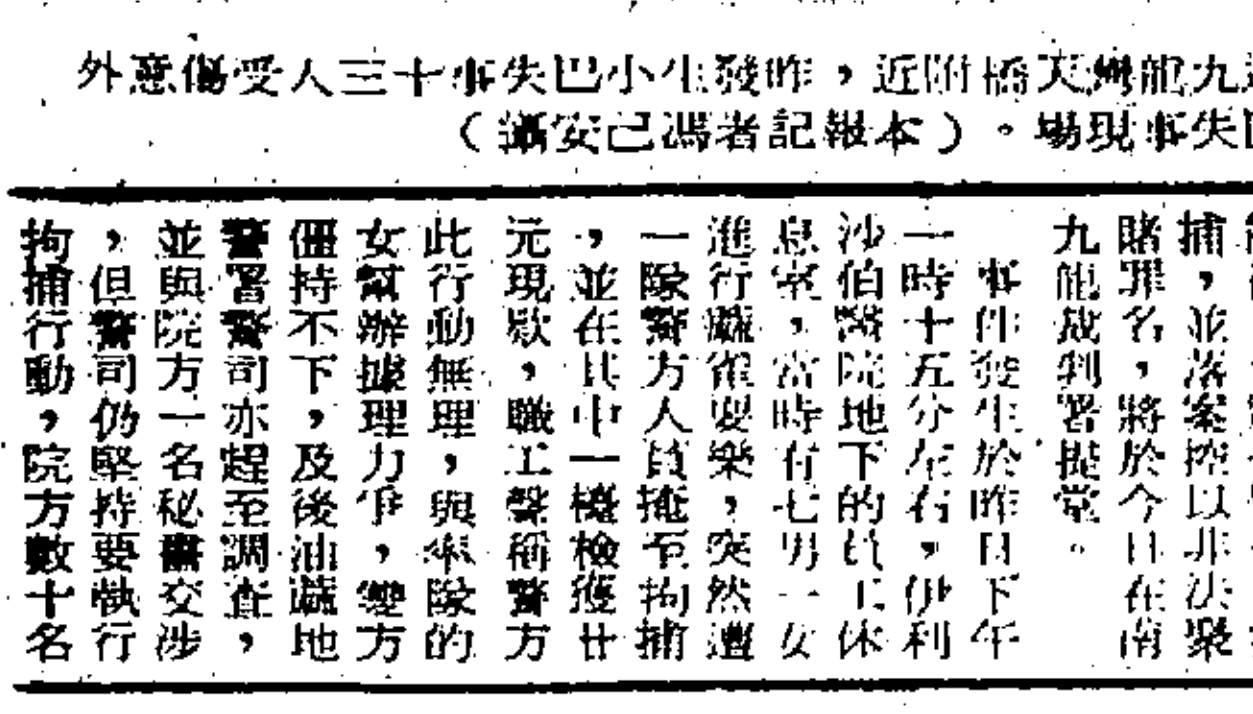 九龍灣天橋附近，昨發生小巴失事十三人受傷意外
失事現場。（本報記者馮己安攝）
捕，並落案控以非法聚
賭罪名，將於今日在南
九龍裁判署提堂。
事件發生於昨日下午
一時十五分左右，伊利
沙伯醫院地下的員工休
息室，當時有七男一女
進行蔴雀耍樂，突然遭
一隊警方人員掩至拘捕
，並在其中一檯檢獲廿
元現欵，職工聲稱警方
此行動無理，與率隊的
女幫辦據理力爭，雙方
僵持不下，及後油蔴地
警署警司亦趕至調查，
並與院方一名秘書交涉
，但警司仍堅持要執行
拘捕行動，院方數十名